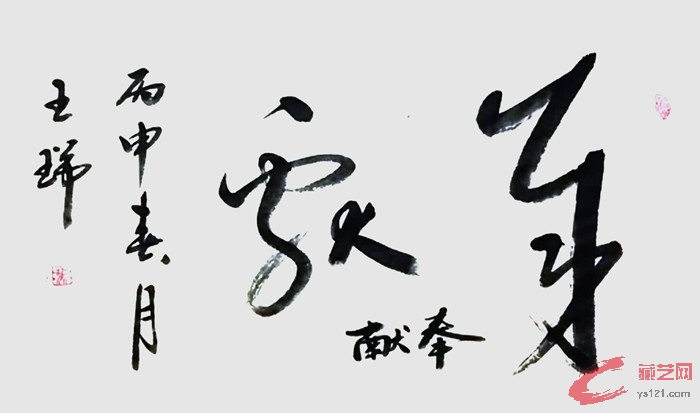 奉献
奉献
丙申春月
王瑞
藏艺网
ys121.com